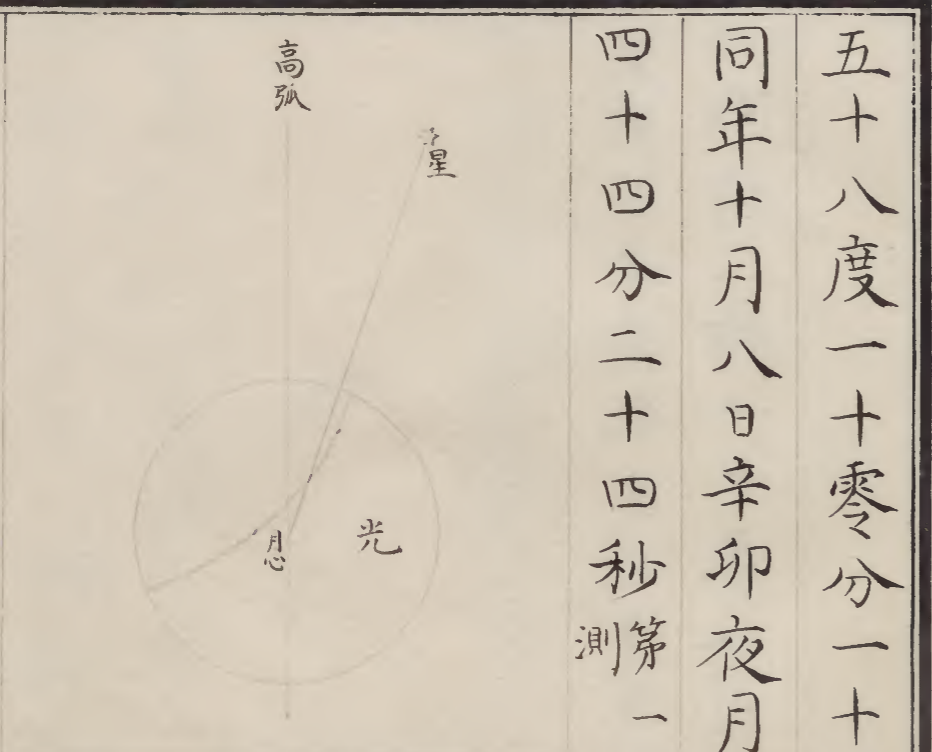 五十八度一十零分一十
同年十月八日辛卯夜月
四十四分二十四秒第一
測
高弧
星
光
月心